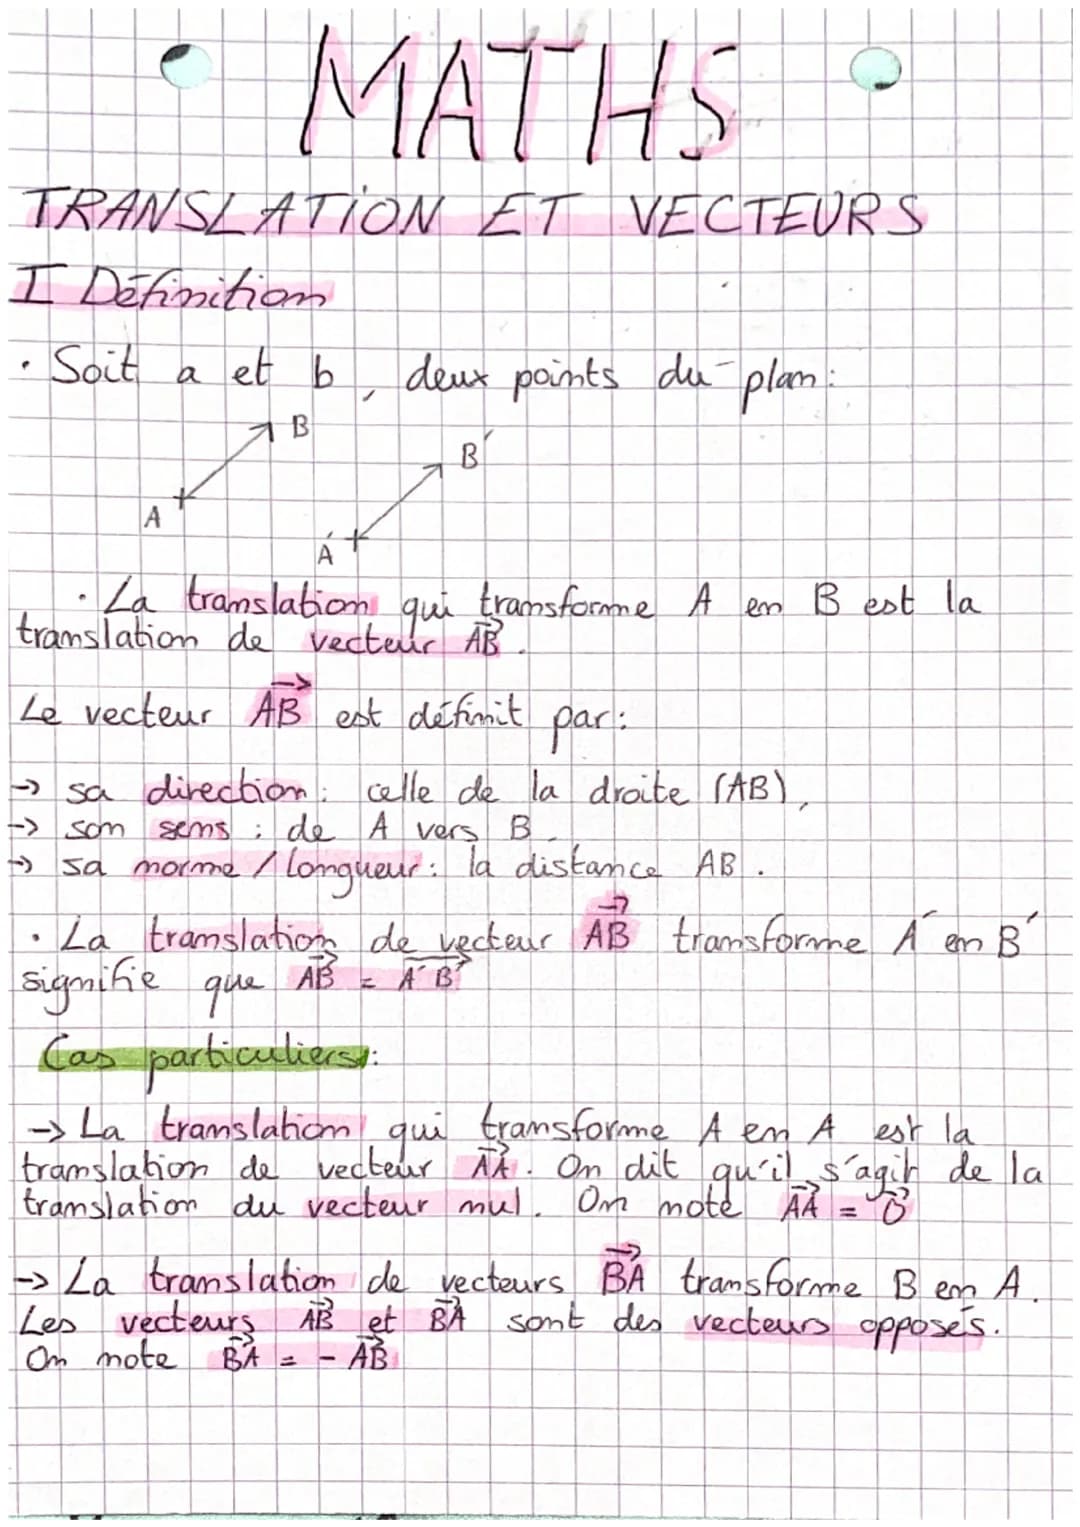 MATHS
TRANSLATION ET VECTEURS
I Définition
• Soit a et b, deux points du plan :
B
B'
A
A'
• La translation qui transforme A en B est la
translation de vecteur \overrightarrow{AB}.
Le vecteur \overrightarrow{AB} est définit par :
→ sa direction : celle de la droite (AB),
→ son sens : de A vers B,
→ sa norme / longueur : la distance AB.
• La translation de vecteur \overrightarrow{AB} transforme A' en B'
signifie que \overrightarrow{AB} = \overrightarrow{A'B'}
Cas particuliers :
→ La translation qui transforme A en A est la
translation de vecteur \overrightarrow{AA}. On dit qu'il s'agit de la
translation du vecteur nul. On note \overrightarrow{AA} = \overrightarrow{0}
→ La translation de vecteurs \overrightarrow{BA} transforme B en A.
Les vecteurs \overrightarrow{AB} et \overrightarrow{BA} sont des vecteurs opposés.
On note \overrightarrow{BA} = - \overrightarrow{AB}